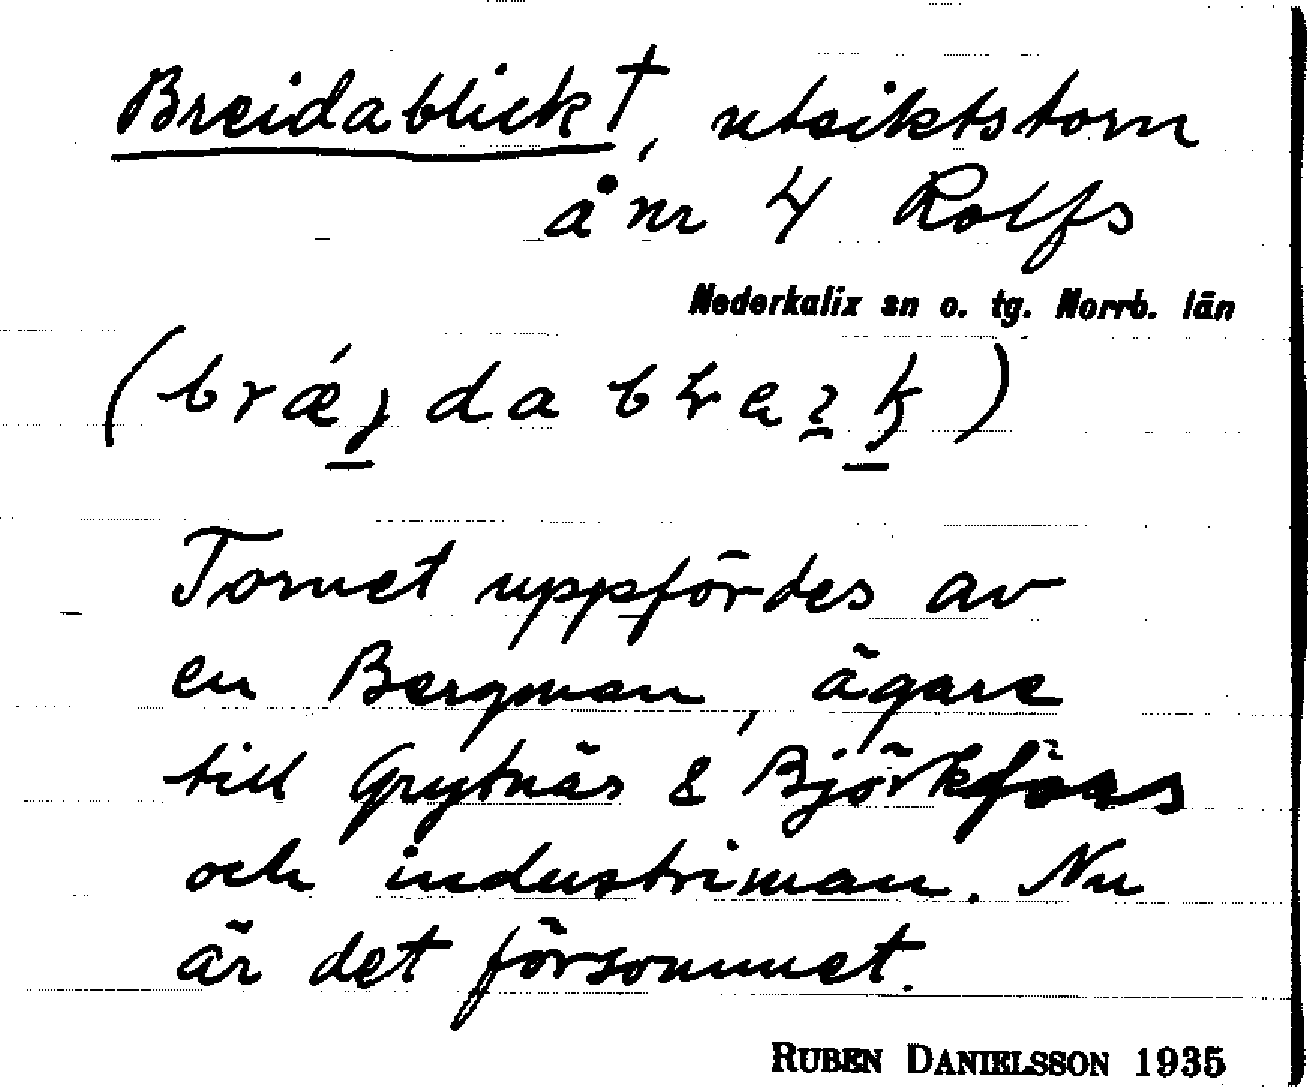 Breidablick†, utsiktstorn
å nr 4 Rolfs
Nederkalix sn o. tg. Norrb. län
Tornet uppfördes av
en Bergman, ägare
till Grytnäs & Björkfors
och industriman. Nu
är det försommet.
RUBEN DANIELSSON 1935